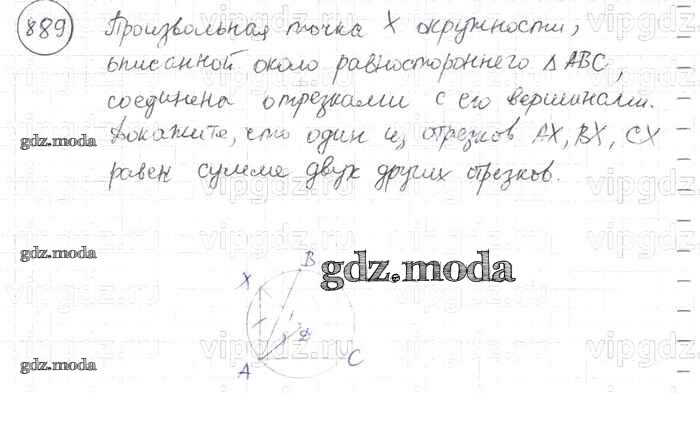 889 Произвольная точка X окружности,
описанной около равностороннего Δ ABC,
соединена отрезками с его вершинами.
Докажите, что один из отрезков AX, BX, CX
равен сумме двух других отрезков.
gdz.moda
gdz.moda
gdz.moda
gdz.moda
B
X
A
C
vipgdz